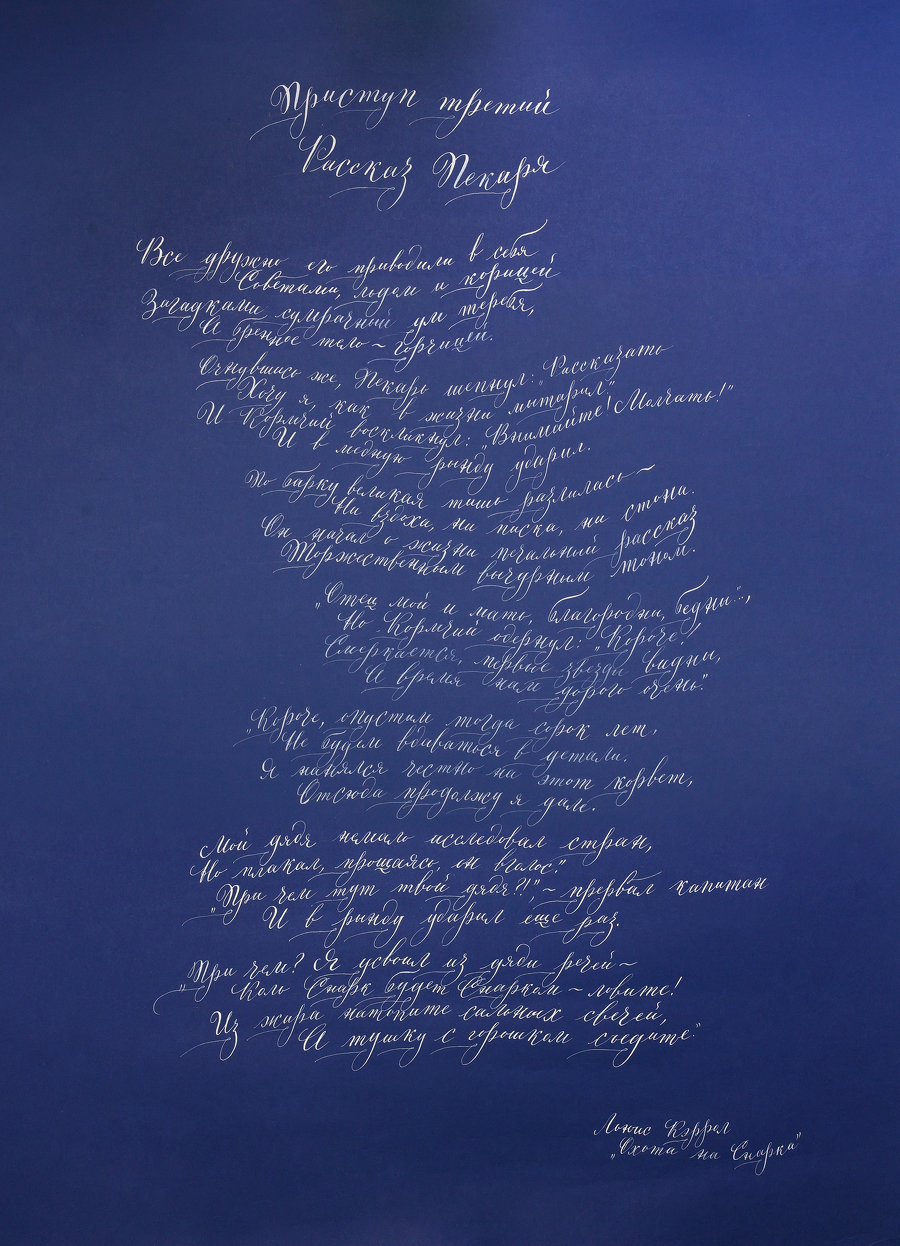 Приступ третий
Рассказ Пекаря
Все дружно его приводили в себя
Советами, льдом и корицей
Загадками сумрачный ум теребя,
А бренное тело ~ горчицей.
Очнувшись же, Пекарь шепнул: „Рассказать
Хочу я, как в жизни мытарил”
И Кормчий воскликнул: „Внимайте! Молчать!”
И в медную рынду ударил.
По барку великая тишь разлилась ~
Ни вздоха, ни писка, ни стона.
Он начал о жизни печальный рассказ
Торжественным вычурным тоном.
„Отец мой и мать, благородны, бедны...”,
Но Кормчий одернул: „Короче!
Смеркается, первые звезды видны,
А время нам дорого очень.”
„Короче, опустим тогда сорок лет,
Не будем вдаваться в детали.
Я нанялся честно на этот корвет,
Отсюда продолжу я дале.
Мой дядя немало исследовал стран,
Но плакал, прощаясь, он вголос.”
„При чем тут твой дядя?!” ~ прервал капитан
И в рынду ударил еще раз.
„При чем? Я усвоил из дяди речей ~
Коль Снарк будет Снарком ~ ловите!
Из жира натопите сальных свечей,
А тушку с горошком съедите.”
Льюис Кэррол
„Охота на Снарка”